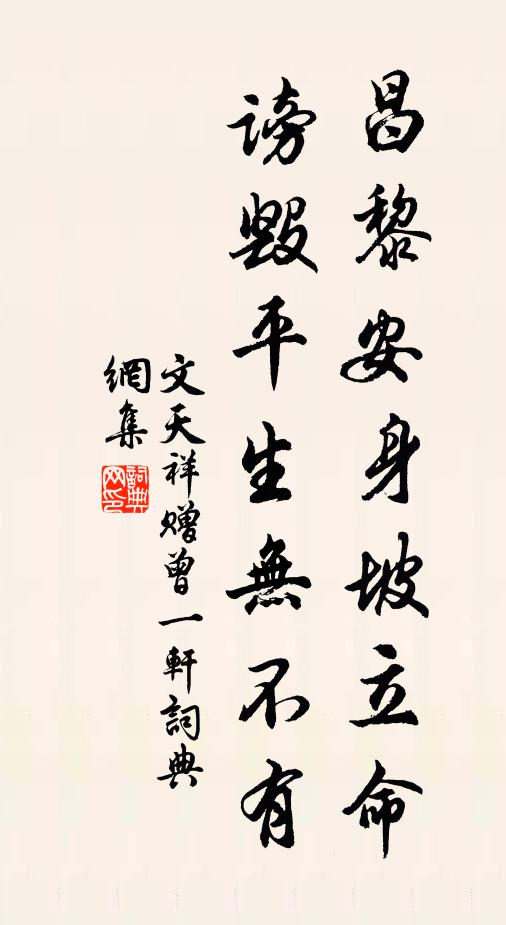 昌黎安身坡立命
謗毀平生無不有
文天祥贈曾一軒詞典
網集
詞典網印